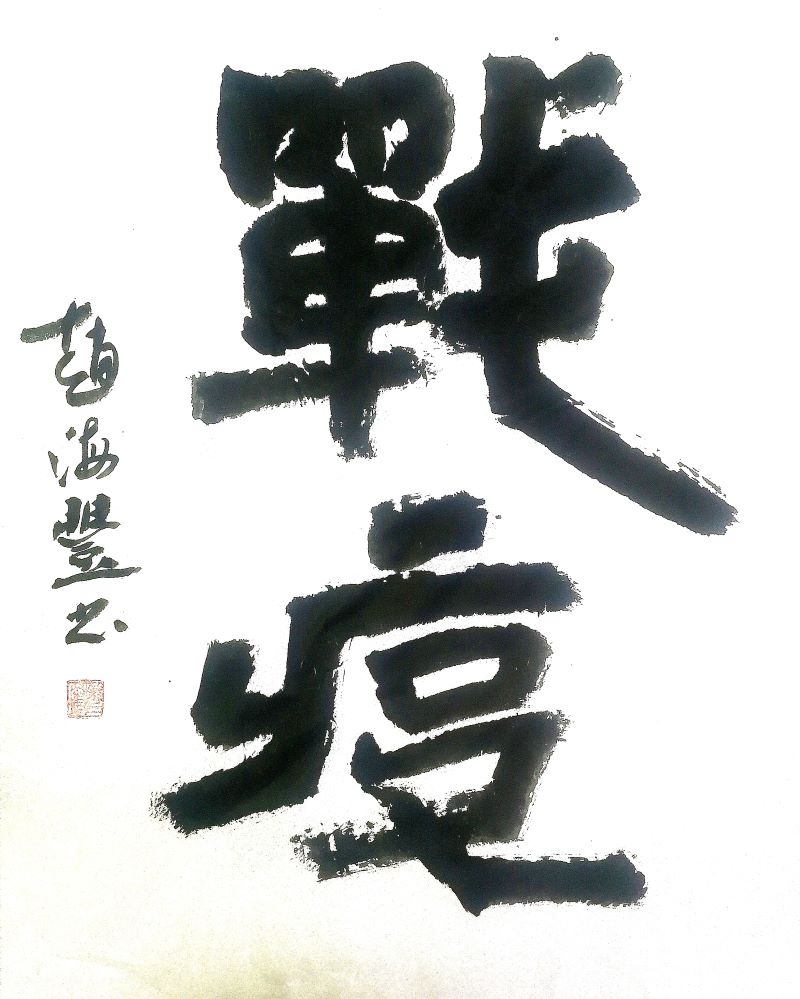 戰疫
趙海豐书